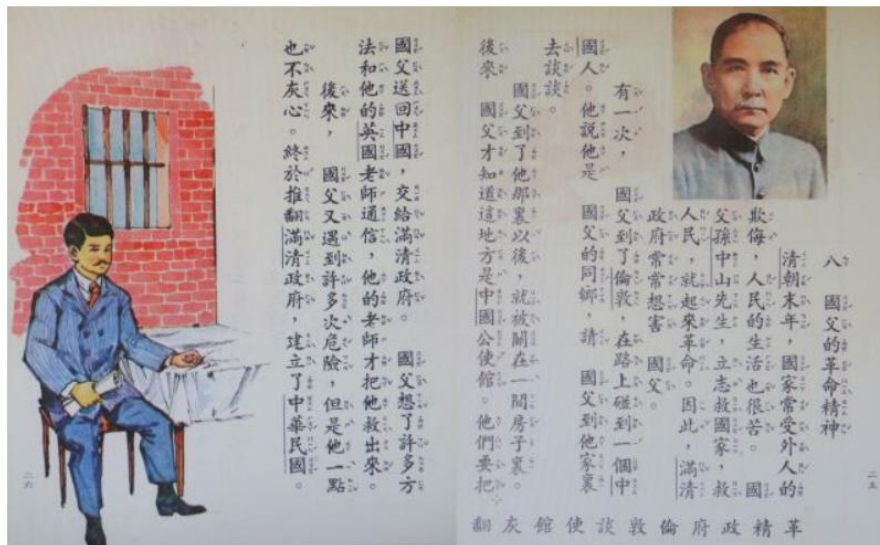 八　國父的革命精神
清朝末年，國家常受外人的
欺侮，人民的生活也很苦。　國
父孫中山先生，立志救國家，救
人民，就起來革命。因此，滿清
政府常常想害　國父。
有一次，　國父到了倫敦，在路上碰到一個中
國人。他說他是　國父的同鄉，請　國父到他家裏
去談談。
國父到了他那裏以後，就被關在一間房子裏。
後來　國父才知道這地方是中國公使館。他們要把
革精政府倫敦談使館灰翻
二五
國父送回中國，交給滿清政府。　國父想了許多方
法和他的英國老師通信，他的老師才把他救出來。
後來，　國父又遇到許多次危險，但是他一點
也不灰心。終於推翻滿清政府，建立了中華民國。
二六